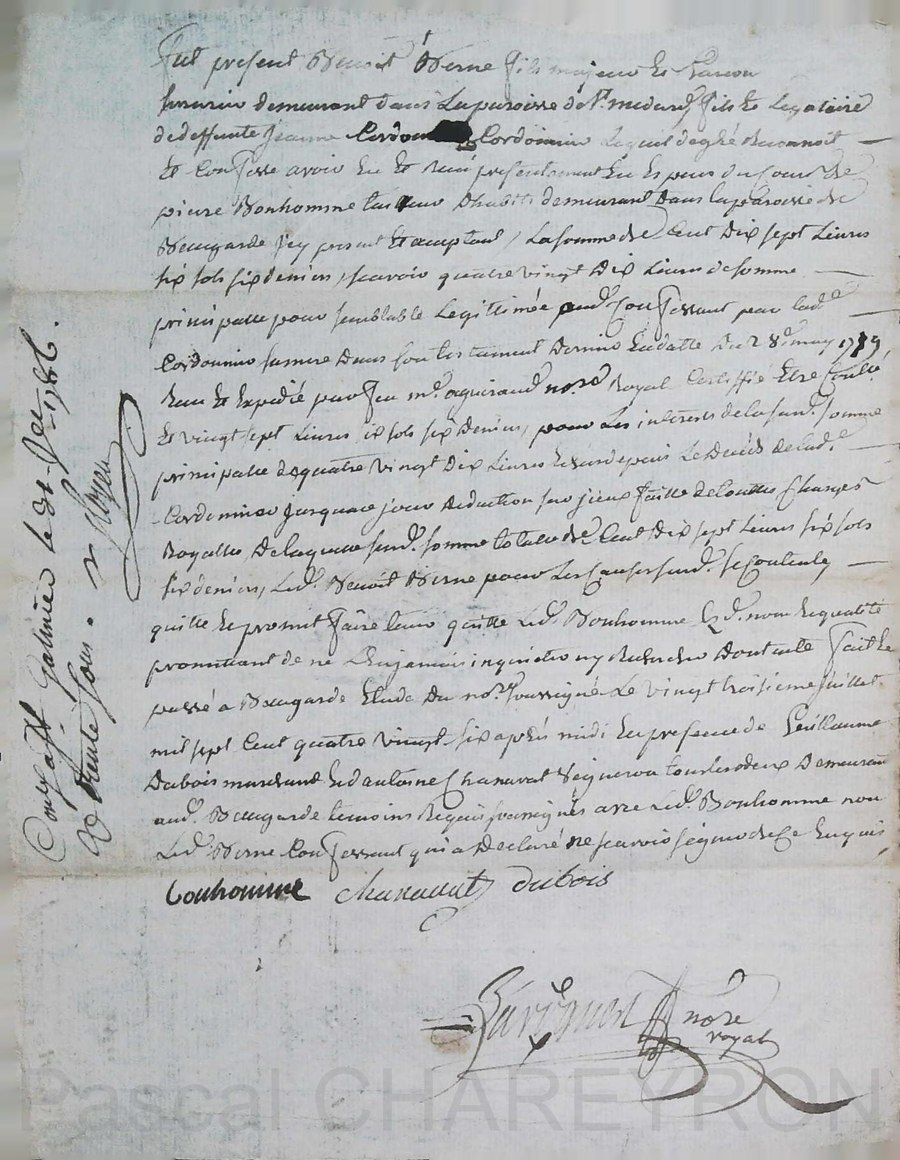 Fut présent Benoit Verne fils majeur et garcon
serurier demeurant dans la paroisse de St. medard fils et legataire
de deffunte Jeanne Cordonnier lequel de gré Reconnoit
et Confesse avoir eu et Receu presentement en especes du cours de
pierre Bonhomme tailleur d'habits demeurant dans la paroisse de
Beaugarde icy present et acceptant, La somme de Cent Dix sept Livres
six sols six deniers, scavoir quatre vingt Dix Livres de somme
principalle pour semblable Legittimée au d. Confessant par lad.e
Cordonnier sa mere Dans son testament dernier en datte du 28e may
Receu et Expedié par feu me. aguiraud nore Royal Certiffie Etre Conlé
Et vingt sept Livres six sols six Deniers, pour Les interests de la sud. somme
principalle de quatre vingt Dix Livres depuis Le Deces de lad.e
Cordonnier jusqu'a ce jour deduction sur jceux faitte de touttes Charges
Royalles De laquelle sud. somme totalle de Cent Dix sept Livres six sols
six deniers, Led. Benoit Verne pour Les Causes sud. se Contente
quitte et promet faire tenir quitte Led. Bonhomme en qualité
promettant de ne L'en jamais inquieter ny Rechercher Dont acte fait et
passé a Beaugarde Etude Du nore. soussigné Le vingt troisieme juillet
mil sept Cent quatre vingt six après midi En presence de Guillaume
Dubois marchand et d'antoine Chanavat vigneron tous les deux Demeurant
aud. Beaugarde temoins Requis soussignés avec Led. Bonhomme non
Led. Verne Confessant qui a Declaré ne scavoir signer de Ce Enquis
bonhomme chanavat dubois
nore
royal
Controllé a St. Galmier le 31. 1786.
Rt trente sols.
Pascal CHAREYRON